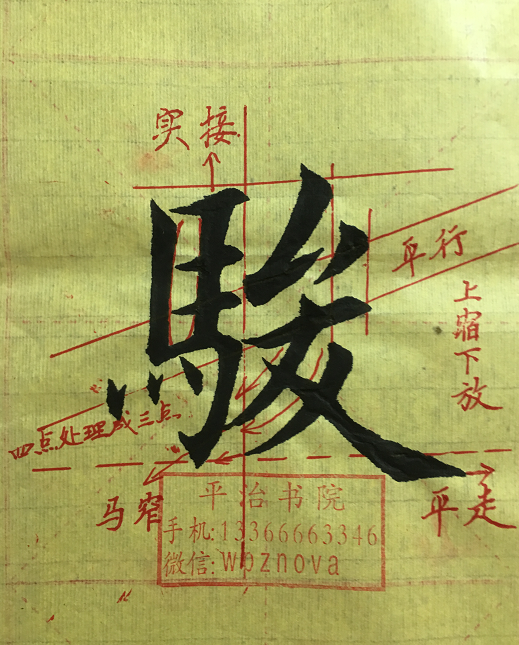 实接
駿
平行
上宿下放
四点处理成三点
马窄
平走
平治书院
手机:13366663346
微信:wbznova